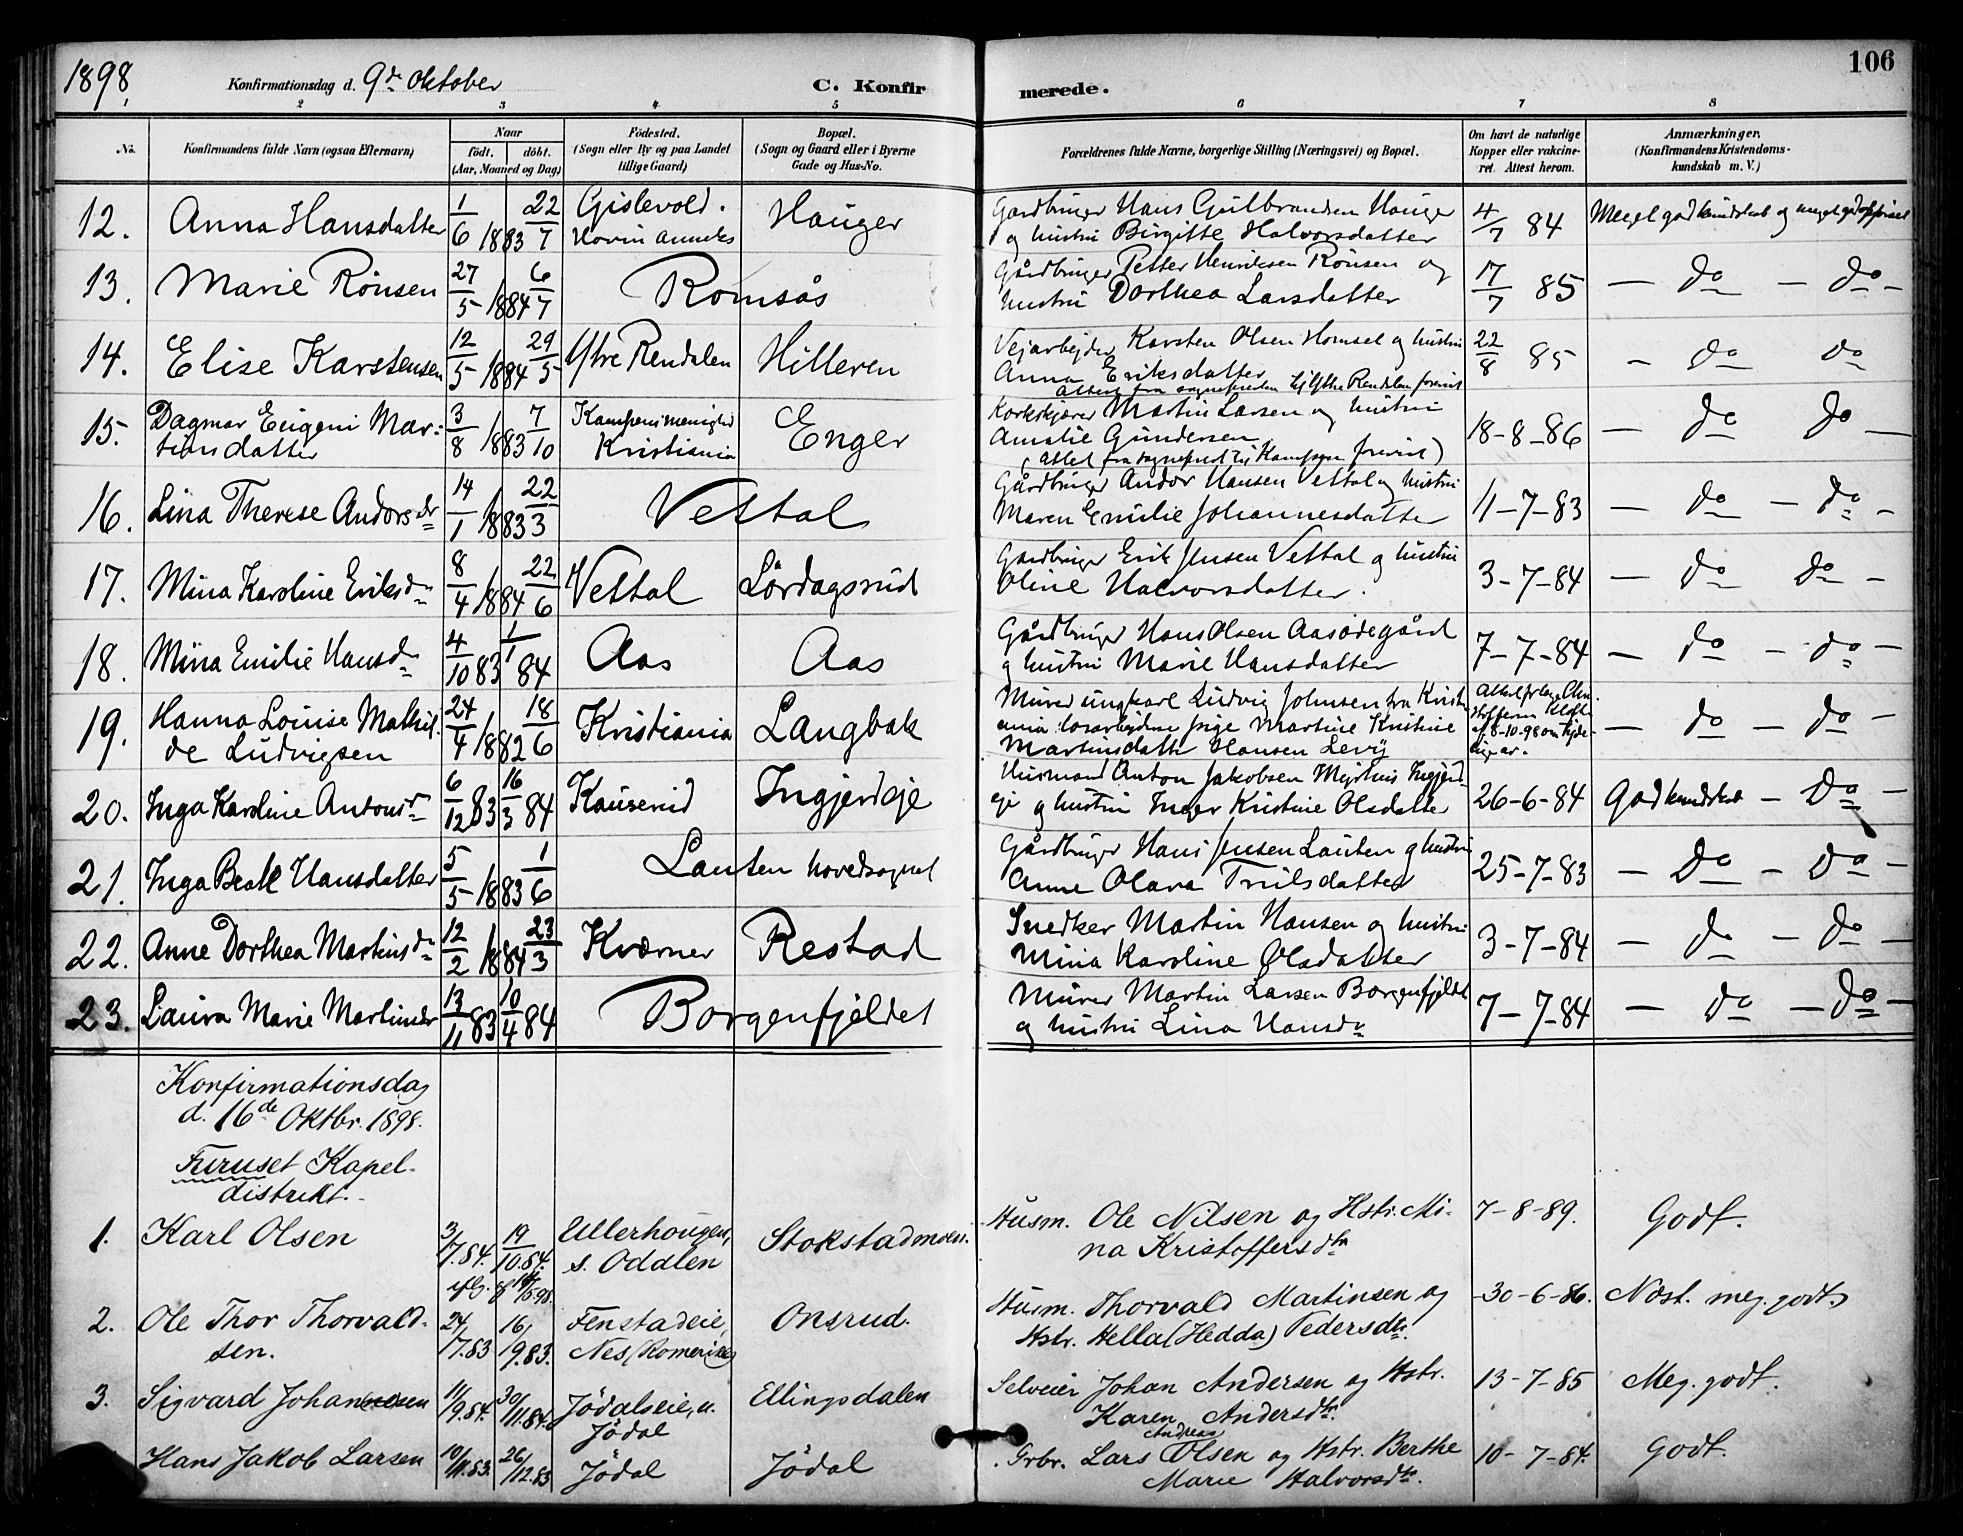 1898, Konfirmationsdag d. 9de Oktober C. Konfir merede. 106
2 3 4 5 6 7 8
No. Konfirmandens fulde Navn (ogsaa Efternavn) Naar født. døbt. (Aar, Maaned og Dag)
Fødested. (Sogn eller By og paa Landet tillige Gaard)
Bopæl. (Sogn og Gaard eller i Byerne Gade og Hus-No.
Forældrenes fulde Navne, borgerlige Stilling (Næringsvei) og Bopæl.
Om havt de naturlige Kopper eller vakcineret. Attest herom.
Anmærkninger. (Konfirmandens Kristendomskundskab m. V.)
12. Anna Hansdatter 1/6 1883 22/7 Gislevold. Hovin Anneks Hauger
Gardbruger Hans Gulbrandsen Hauger 4/7 84 Meget god kundskab og meget god
og hustru Birgitte Halvorsdatter
13. Marie Rönsen 27/5 1884 6/7 Romsås
Gårdbruger Petter Henriksen Rönsen og 17/7 85 — do — do —
hustru Dorthea Larsdatter
14. Elise Karstensen 12/5 1884 29/5 Ytre Rendalen Hilleren
Vejarbejder Karsten Olsen Homsel og hustru 22/8 85 — do do
Anna Eriksdatter
Attest fra sognepresten til Ythre Rendalen forevist
15. Dagmar Eugeni Mar- 3/8 1883 7/10 Kampens menighed Enger
tinsdatter Kristiania
Korkskjærer Martin Larsen og hustru 18-8-86 — do do —
Amalie Gundersen
(Attest fra sognepræst til Kampen forevist)
16. Lina Therese Andorsdr 14/1 1883 22/3 Vestal
Gårdbruger Andor Hansen Vestal og hustru 11-7-83 — do — do —
Maren Emilie Johannesdatter
17. Mina Karoline Eriksdr 8/4 1884 22/6 Vestal Lördagsrud
Gardbruger Erik Jensen Vestal og hustru 3-7-84 — do do —
Oline Halvorsdatter.
18. Mina Emilie Hansdr 4/10 83 1/1 84 Aas Aas
Gårdbruger Hans Olsen Aasödegård 7-7-84 — do — do —
og hustru Marie Hansdatter
19. Hanna Louise Mathil- 24/4 1882 18/6 Kristiania Langbak
de Ludvigsen
Murer ungkarl Ludvig Johnsen fra Kristi- — do — do —
ania løsarbejdene pige Martine Kristine
Martinsdatter Hansen
af 8-10-98 om
20. Inga Karoline Antonsdr 6/12 83 16/3 84 Kauserud Ingjerdeje
Husmand Anton Jakobsen Ingjerd- 26-6-84 God kundskab — do —
eje og hustru Inger Kristine Olsdatter
21. Inga Beate Hansdatter 5/5 1883 1/6 Lauten hovedsognet
Gårdbruger Hans Jensen Lauten og hustru 25-7-83 — do — do —
Anne Olava Trulsdatter
22. Anne Dorthea Martinsdr 12/2 1884 23/3 Kværner Restad
Snedker Martin Hansen og hustru 3-7-84 — do — do —
Mina Karoline Olsdatter
23. Laura Marie Martinsdr 13/11 83 10/4 84 Borgenfjeldet
Murer Martin Larsen Borgenfjeldet 7-7-84 — do — do —
og hustru Lina Hansdr
Konfirmationsdag
d. 16de Oktbr. 1898.
Furuset Kapel-
distrikt.
1. Karl Olsen 3/7.84. 19/10.84. Ullerhougen, s. Oddalen Stokstadmoen.
Husm. Ole Nilsen og Hstr. Mi- 7-8-89. Godt.
na Kristoffersdtr
2. Ole Thor Thorvald- 24/7.83 16/9.83. Fenstadeie, Onsrud.
sen. Nes (Romerike)
Husm. Thorvald Martinsen og 30-6-86. Næst. meg. godt.
Hstr. Hella (Hedda) Pedersdtr.
3. Sigvard Johannesen 11/9.84. 30/11.84. Jödalseie, u. Jödal Ellingsdalen
Selveier Johan Andersen og Hstr. 13-7-85 Meg. godt.
Karen Andersdtr.
Hans Jakob Larsen 10/11.83. 26/12.83 Jödal Jödal
Andreas
Grbr. Lars Olsen og Hstr. Berthe 10-7-84. Godt.
Marie Halvorsdtr.